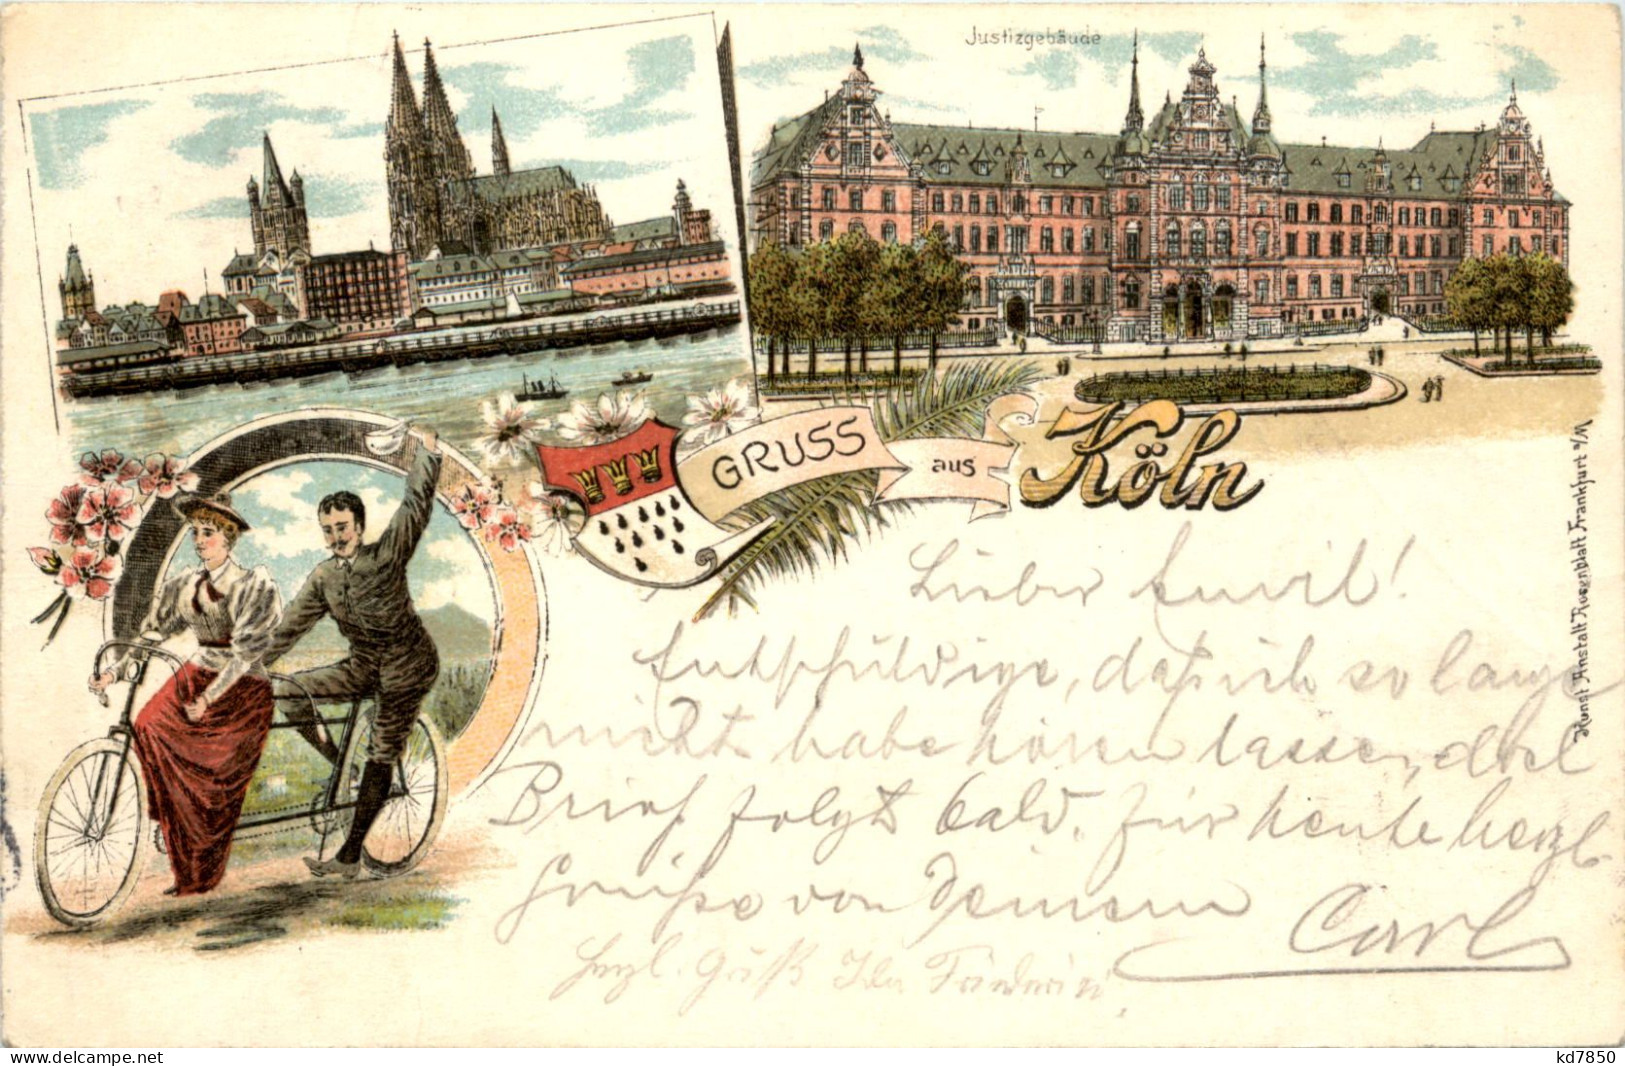 Justizgebäude
GRUSS aus Köln
Lieber Emil!
Entschuldige, daß ich so lange
nicht habe hören lassen, doch
Brief folgt bald. Für heute herzl.
Grüße von Deinem
Carl
Herzl. Gruß Ihr
Kunst Anstalt Rosenblatt Frankfurt a/M
www.delcampe.net
kd7850